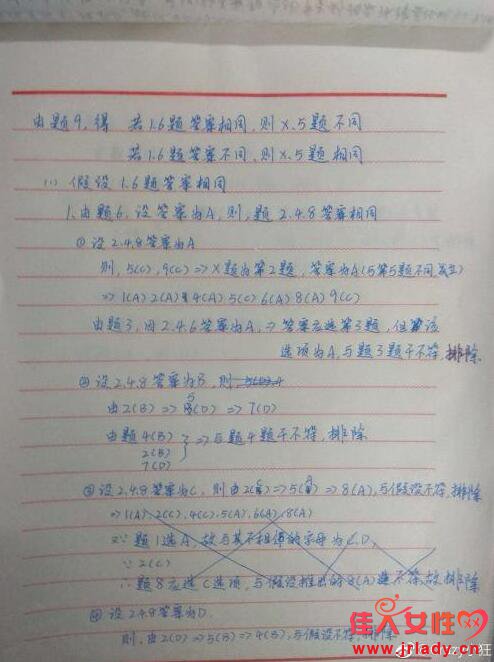 由题9,得 若1.6题答案相同,则X.5题不同
若1.6题答案不同,则X.5题相同
(1) 假设1.6题答案相同
1.由题6,设答案为A,则,题2.4.8答案相同
①设2.4.8答案为A
则,5(C),9(C)=>X题为第2题,答案为A(与第5题不同,成立)
=>1(A)2(A)4(A)5(C)6(A)8(A)9(C)
由题3,因2.4.6答案为A,=>答案应选第3题,但该
选项为A,与题3题干不符,排除
②设2.4.8答案为B,则
由2(B)=>5(D)=>7(D)
由题4(B)
2(B)
7(D)
=>与题4题干不符,排除
③设2.4.8答案为C,则由2(C)=>5(A)=>8(A),与假设不符,排除
=>1(A),2(C),4(C),5(A),6(A),8(A)
又∵题1选A,故与其不相邻的字母为C.D,
∵2(C)
∴题8应选C选项,与假设推出的8(A)选不符,故排除
④设2.4.8答案为D.
则,由2(D)=>5(B)=>4(B),与假设不符,排除
佳人女性网
www.jrlady.cn